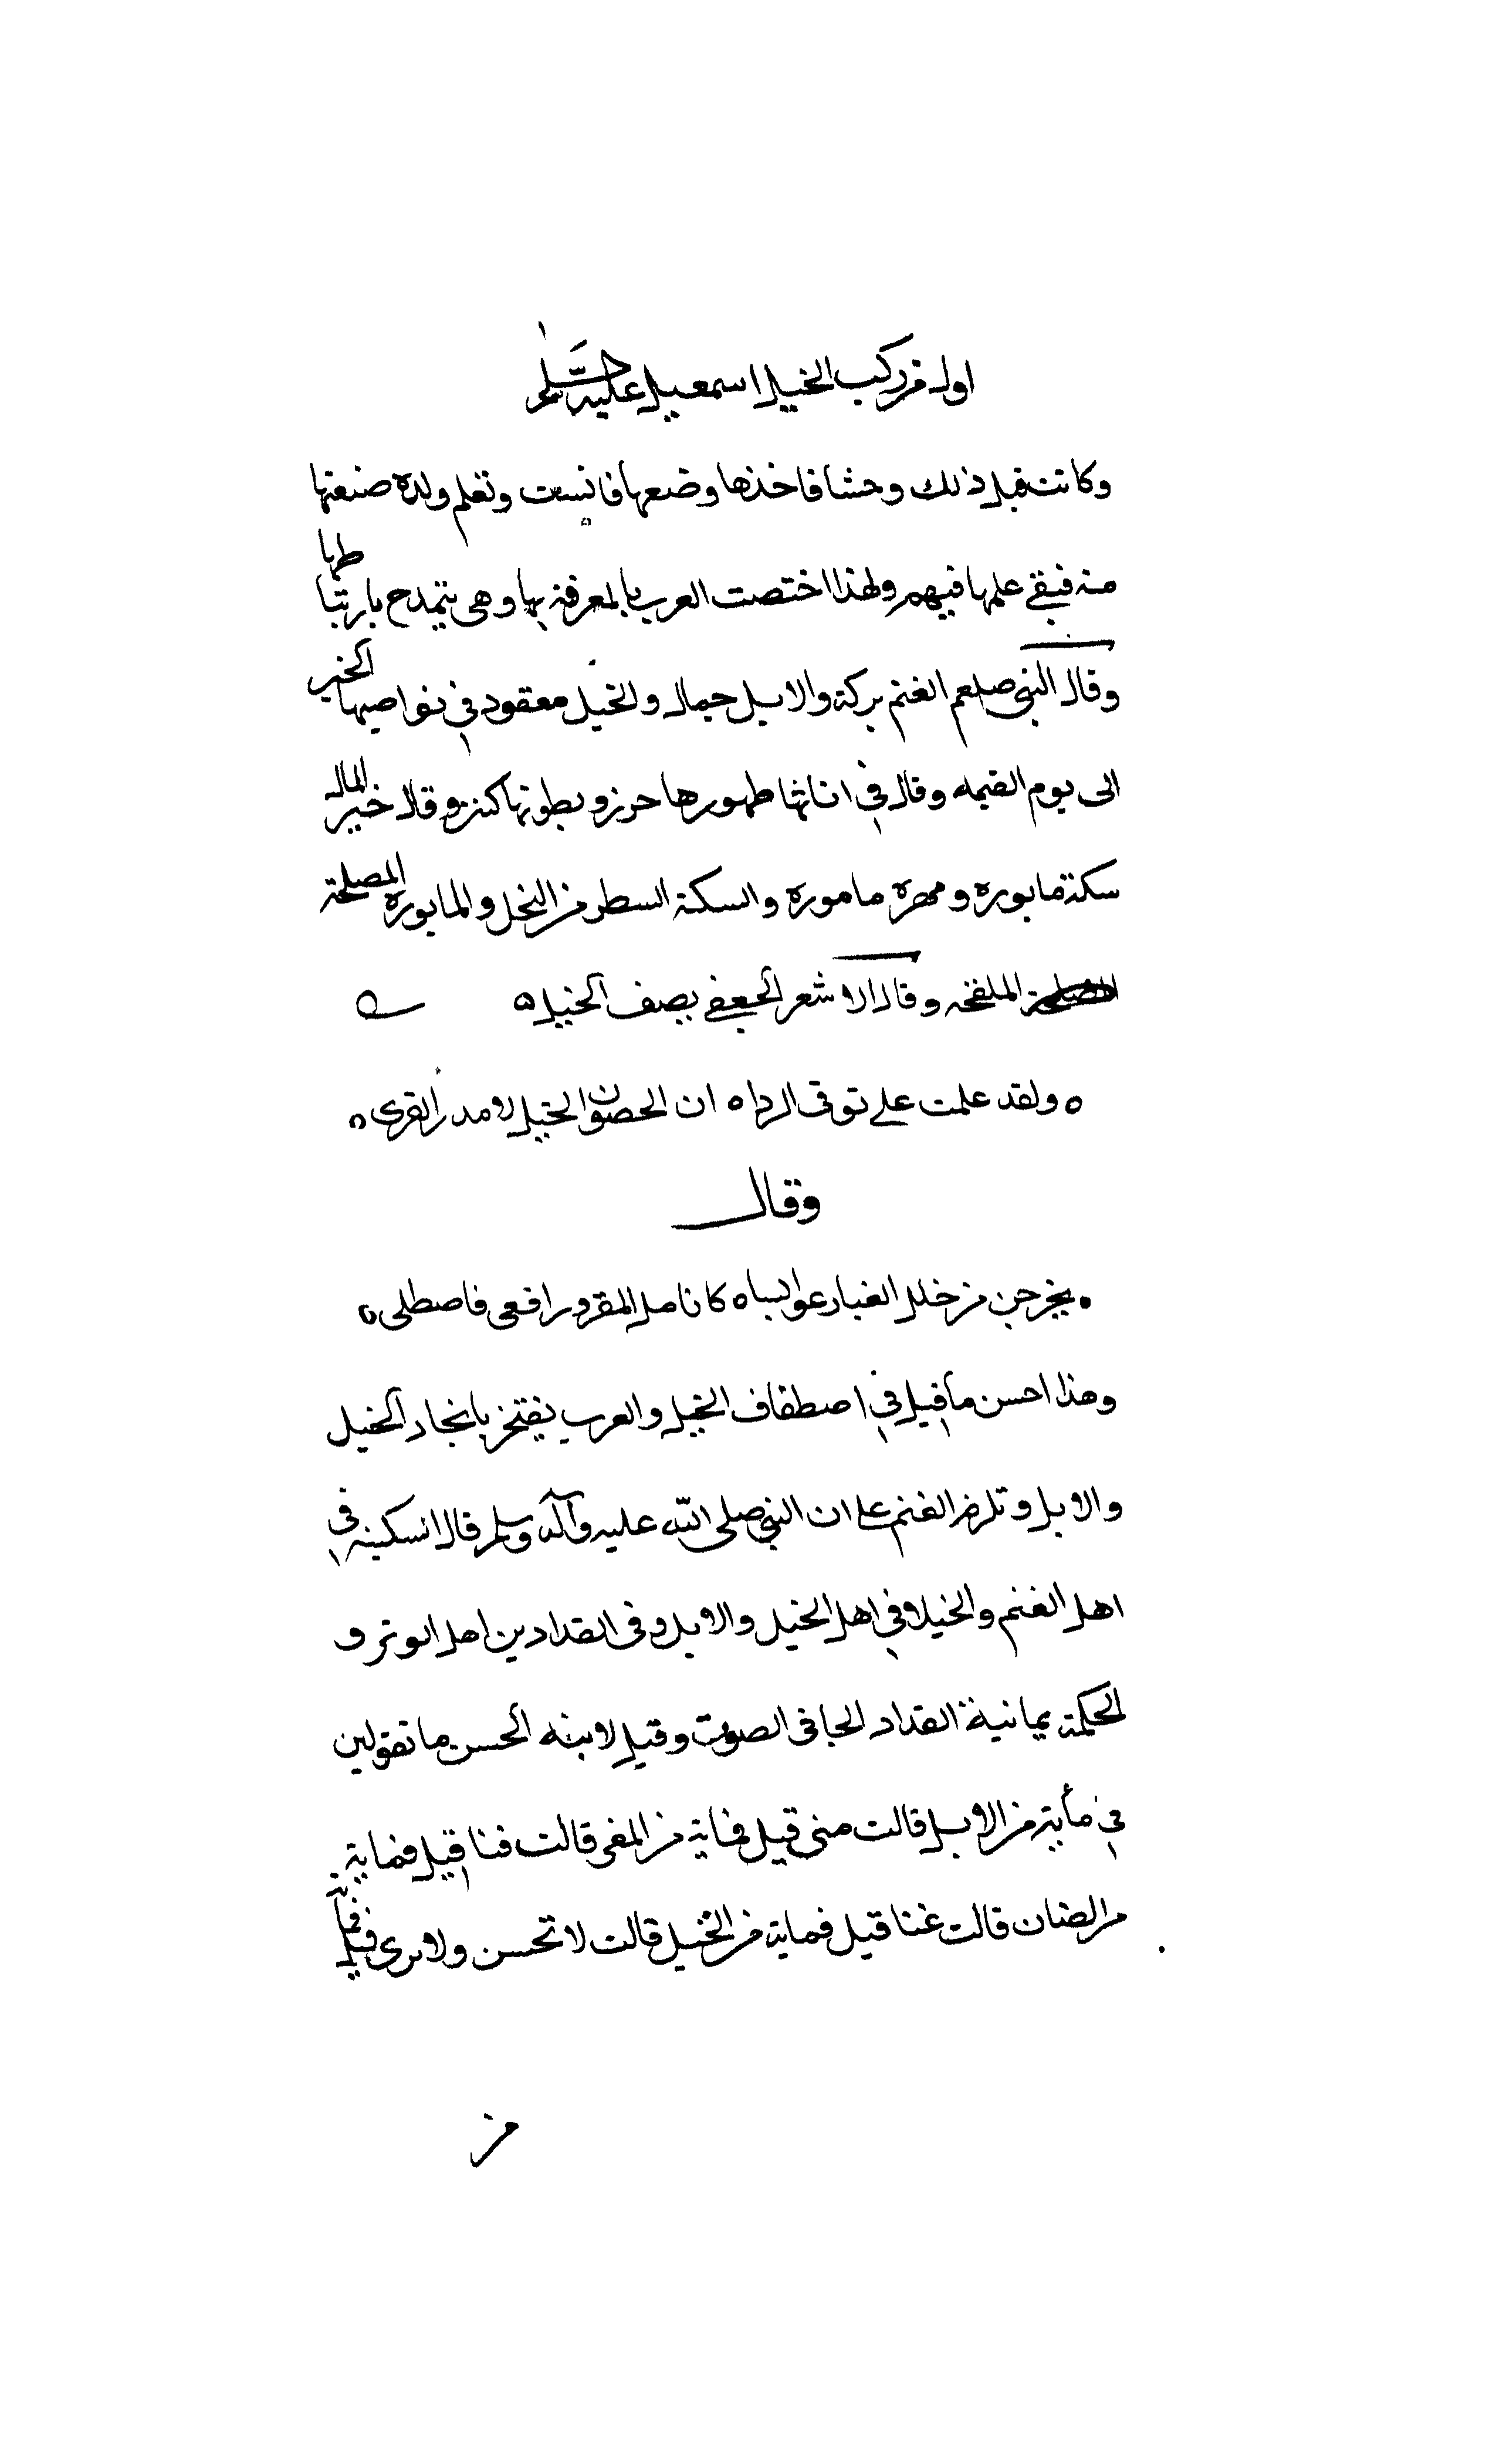 اول من ركب الخيل اسمعيل عليه السلم
وكانت قبل ذلك وحشا فاخذها وضعها فانست وتعلم ولده صنعتها
منه فبقى علمها فيهم ولهذا اختصت العرب بالمعرفة بها وهى تتمدح بارتباطها
وقال النبى صلعم الغنم بركة والابل جمال والخيل معقود فى نواصيها الخير
الى يوم القيمه وقال فى اناثها ظهورها حرز وبطونها كنز وقال خير المال
سكة مابورة ومهرة مامورة والسكة السطر من النخل والمابورة المصلحة
الملقحه وقال الاشعر الجعفى يصف الخيل ه
ه ولقد علمت على توقى الردا ه ان الحصون الخيل لا مدر القرى ه
وقال
ه يخرجن من خلل الغبار عوابسا ه كانامل المقرور اقعى فاصطلى ه
وهذا احسن ما قيل فى اصطفاف الخيل والعرب يفتخر باتخاد الخيل
والابل وتلزم الغنم على ان النبى صلى الله عليه وآله وسلم قال السكينة فى
اهل الغنم والخيلا فى اهل الخيل والابل وفى الفدادين اهل الوبر و
الحكمة يمانية الفداد الجافى الصوت وقيل لابنه الحسن ما تقولين
فى مأية من الابل قالت منى قيل فماية من المغرى قالت قنا قيل فماية
من الضان قالت غنا قيل فماية من الخيل قالت لا تحسن ولا ترى قيل فما
من